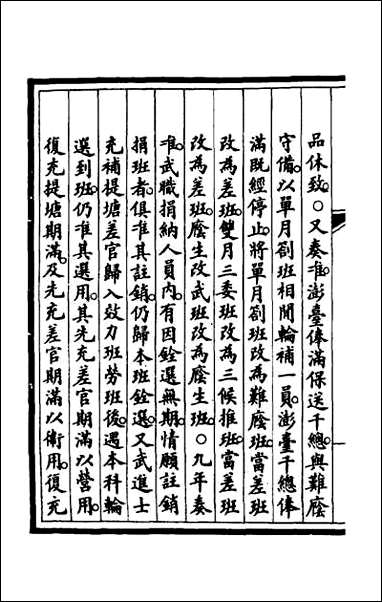 品休致○又奏准澎臺俸滿保送千總與難廕
守備以單月劄班相閒輪補一員澎臺千總俸
滿既經停止將單月劄班改為難廕班當差班
改為差班雙月三委班改為三候推班當差班
改為差班廕生改武班改為廕生班○九年奏
准武職捐納人員內有因銓選無期情願註銷
捐班者俱准其註銷仍歸本班銓選又武進士
充補提塘差官歸入效力班勞班後遇本科輪
選到班仍准其選用其先充差官期滿以營用
復充提塘期滿及先充差官期滿以衛用復充